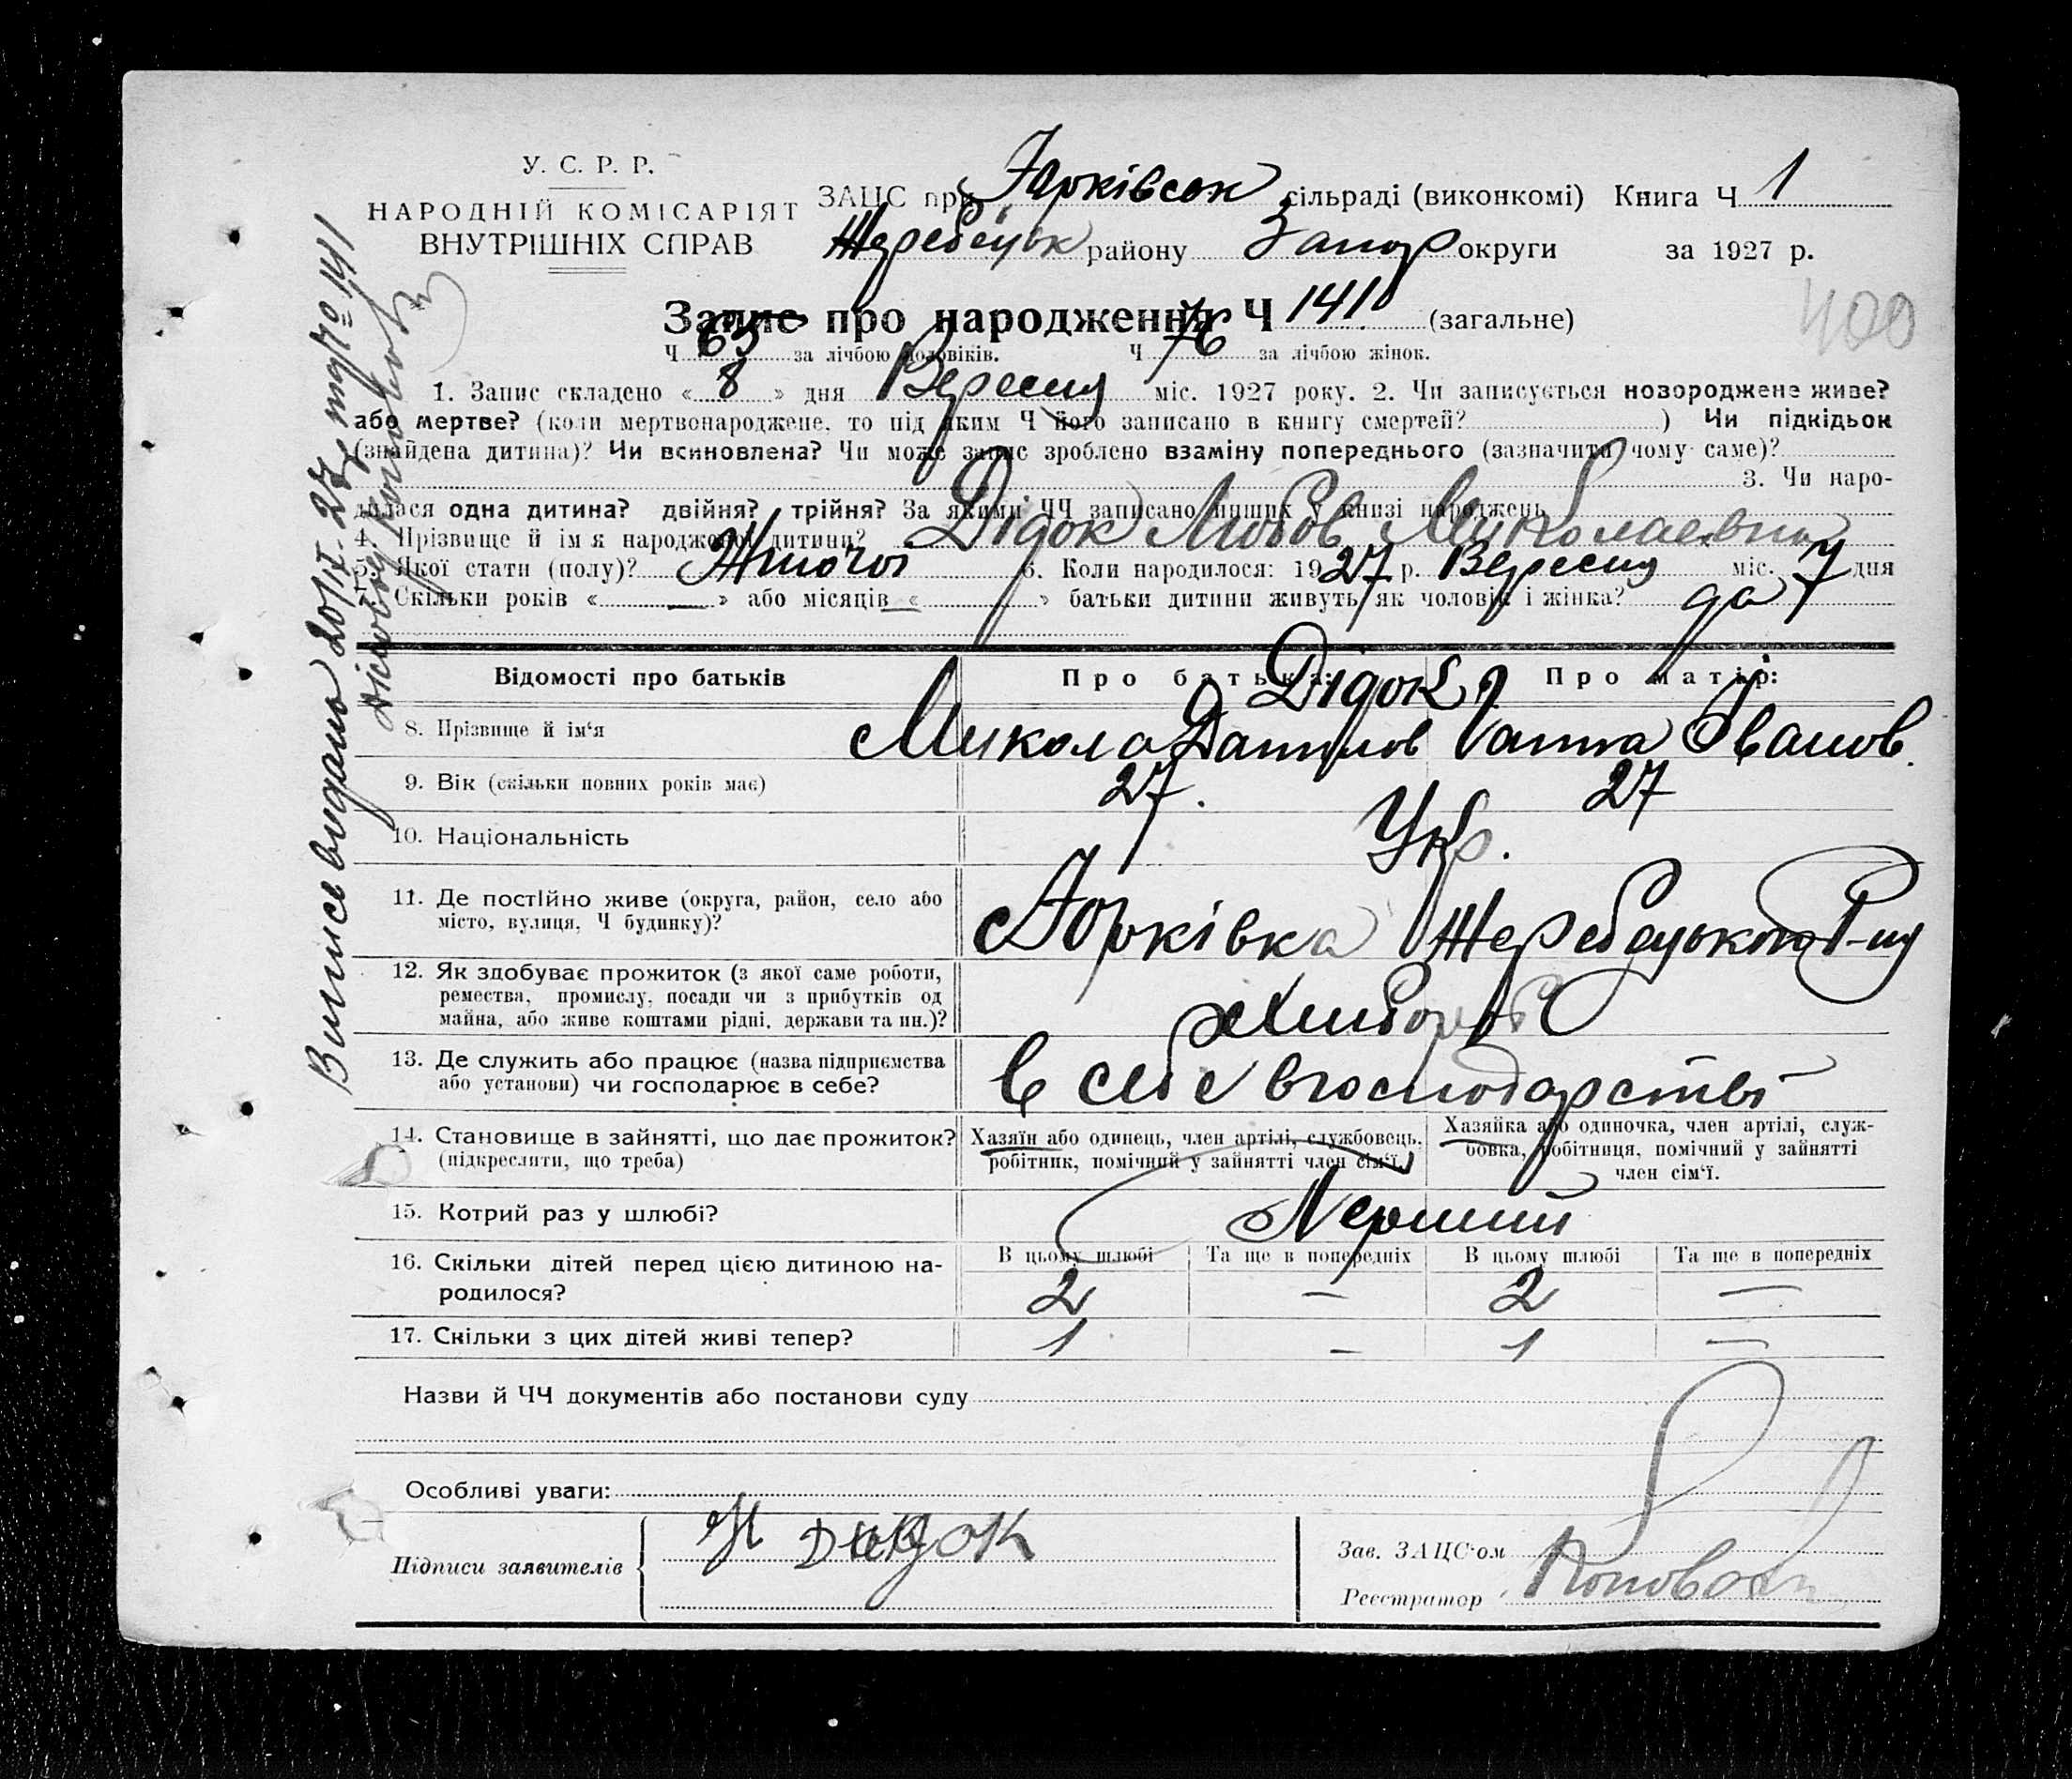 У. С. Р. Р.
НАРОДНІЙ КОМІСАРІЯТ
ВНУТРІШНІХ СПРАВ
ЗАЦС при Юрківськ сільраді (виконкомі) Книга Ч 1
Жеребецьк району Запор округи за 1927 р.
400
Запис про народження Ч 141 (загальне)
Ч 65 за лічбою чоловіків. Ч 76 за лічбою жінок.
1. Запис складено «8» дня Вересня міс. 1927 року. 2. Чи записується новороджене живе?
або мертве? (коли мертвонароджене, то під яким Ч його записано в книгу смертей? ) Чи підкідьок
(знайдена дитина)? Чи всиновлена? Чи може запис зроблено взаміну попереднього (зазначити чому саме)?
3. Чи наро-
дилася одна дитина? двійня? трійня? За якими ЧЧ записано инших у книзі народжень
4. Прізвище й ім'я народженої дитини? Дідок Любов Миколаєвна
5. Якої стати (полу)? Жіночої 6. Коли народилося: 1927 р. Вересня міс. 7 дня
7. Скільки років « — » або місяців « » батьки дитини живуть як чоловік і жінка? да
Відомості про батьків Про батька: Про матір:
Дідок
8. Прізвище й ім'я Микола Данилов Ганна Іванов.
9. Вік (скільки повних років має) 27. 27
10. Національність Укр.
11. Де постійно живе (округа, район, село або
місто, вулиця, Ч будинку)? Юрківка Жеребецького Р-ну
12. Як здобуває прожиток (з якої саме роботи,
ремества, промислу, посади чи з прибутків од
майна, або живе коштами рідні, держави та ин.)?
13. Де служить або працює (назва підприємства
або установи) чи господарює в себе? в себе в господарстві
14. Становище в зайнятті, що дає прожиток?
(підкреслити, що треба)
Хазяїн або одинець, член артілі, службовець,
робітник, помічний у зайнятті член сім'ї.
Хазяйка або одиночка, член артілі, служ-
бовка, робітниця, помічний у зайнятті
член сім'ї.
15. Котрий раз у шлюбі? Перший
В цьому шлюбі Та ще в попередніх В цьому шлюбі Та ще в попередніх
16. Скільки дітей перед цією дитиною на-
родилося? 2 — 2 —
17. Скільки з цих дітей живі тепер? 1 — 1 —
Назви й ЧЧ документів або постанови суду
Особливі уваги:
Підписи заявителів Н Дидок
Зав. ЗАЦС'ом
Реєстратор
Випись видано 20/IX-27